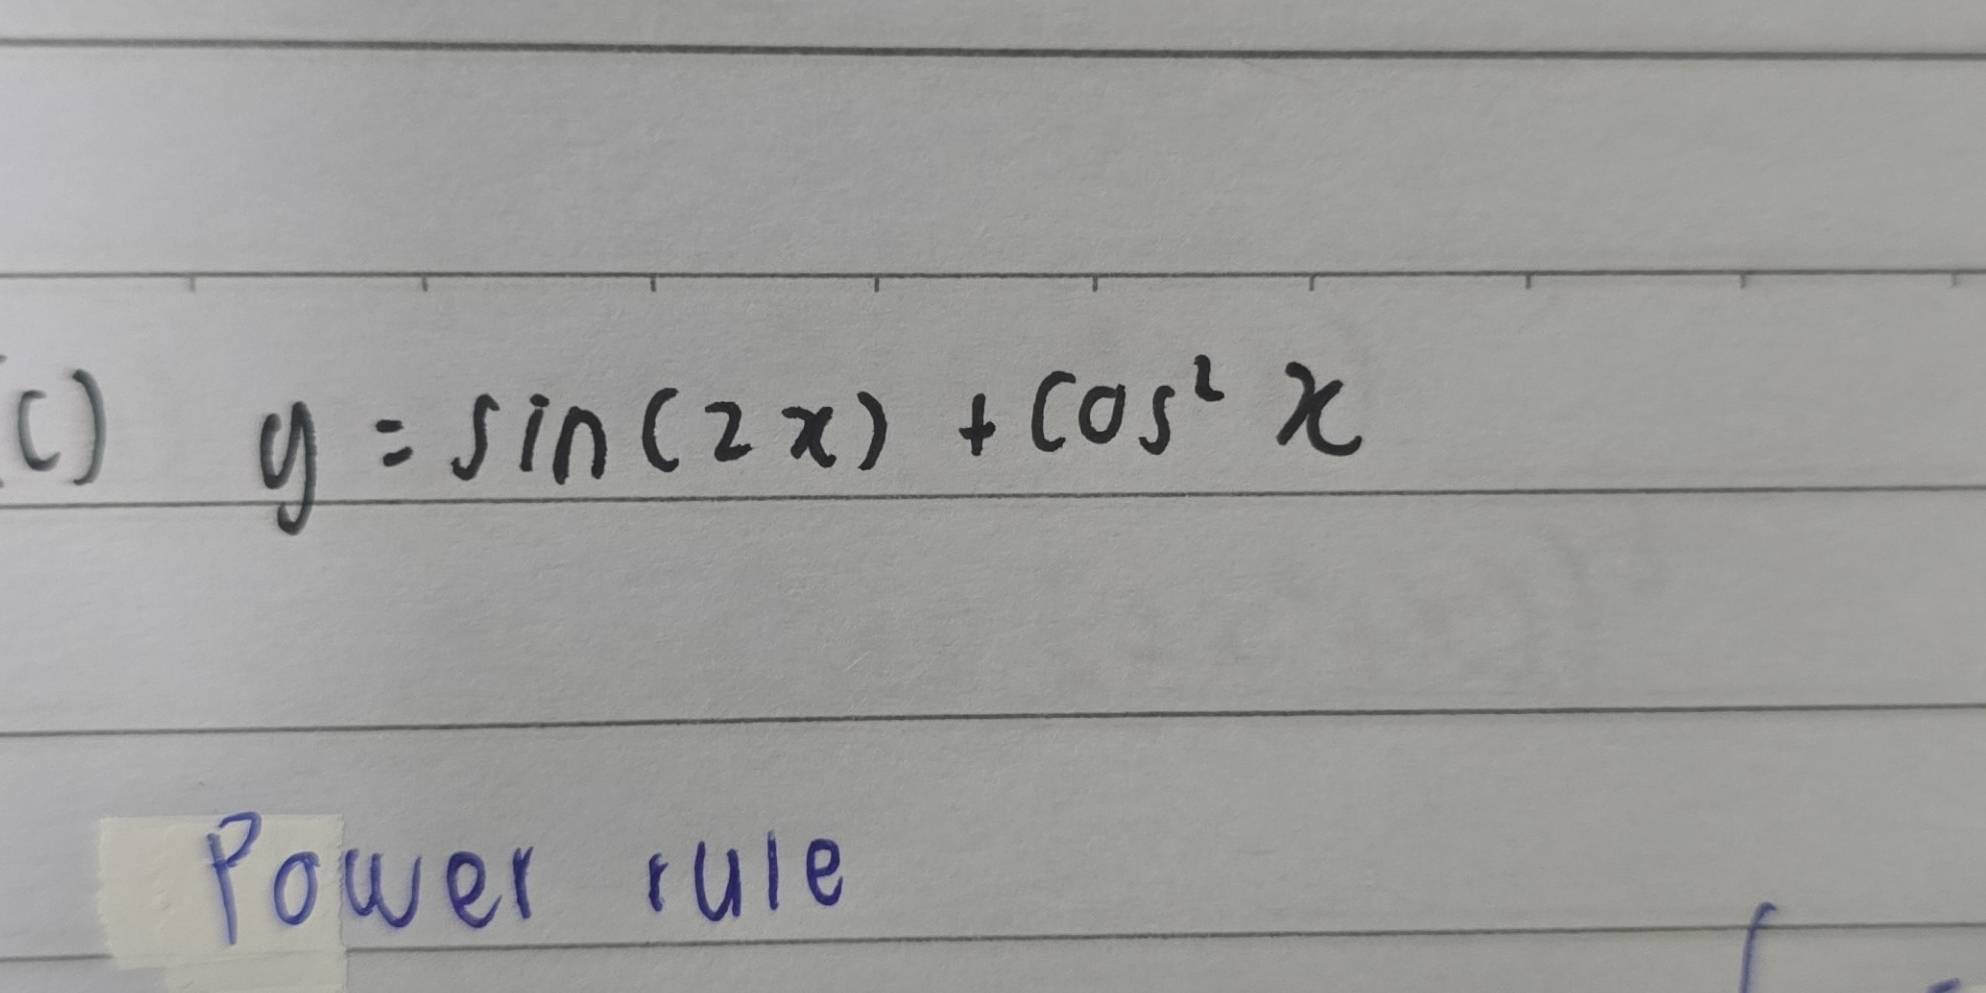 (c) y = sin(2x) + cos² x
Power rule